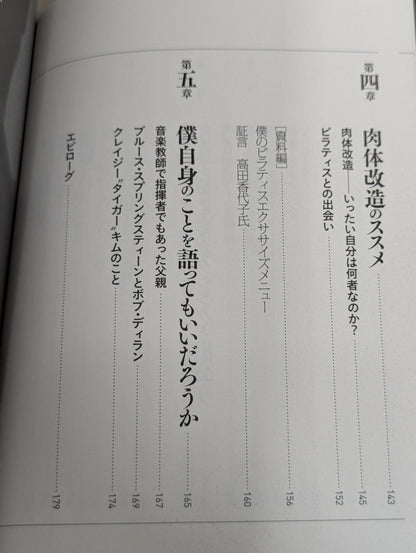 第四章 肉体改造のススメ 143
肉体改造——いったい自分は何者なのか? 145
ピラティスとの出会い 152
[資料編]
僕のピラティスエクササイズメニュー 156
証言 高田香代子氏 160
第五章 僕自身のことを語ってもいいだろうか 165
音楽教師で指揮者でもあった父親 167
ブルース・スプリングスティーンとボブ・ディラン 169
クレイジー“タイガー”キムのこと 174
エピローグ 179